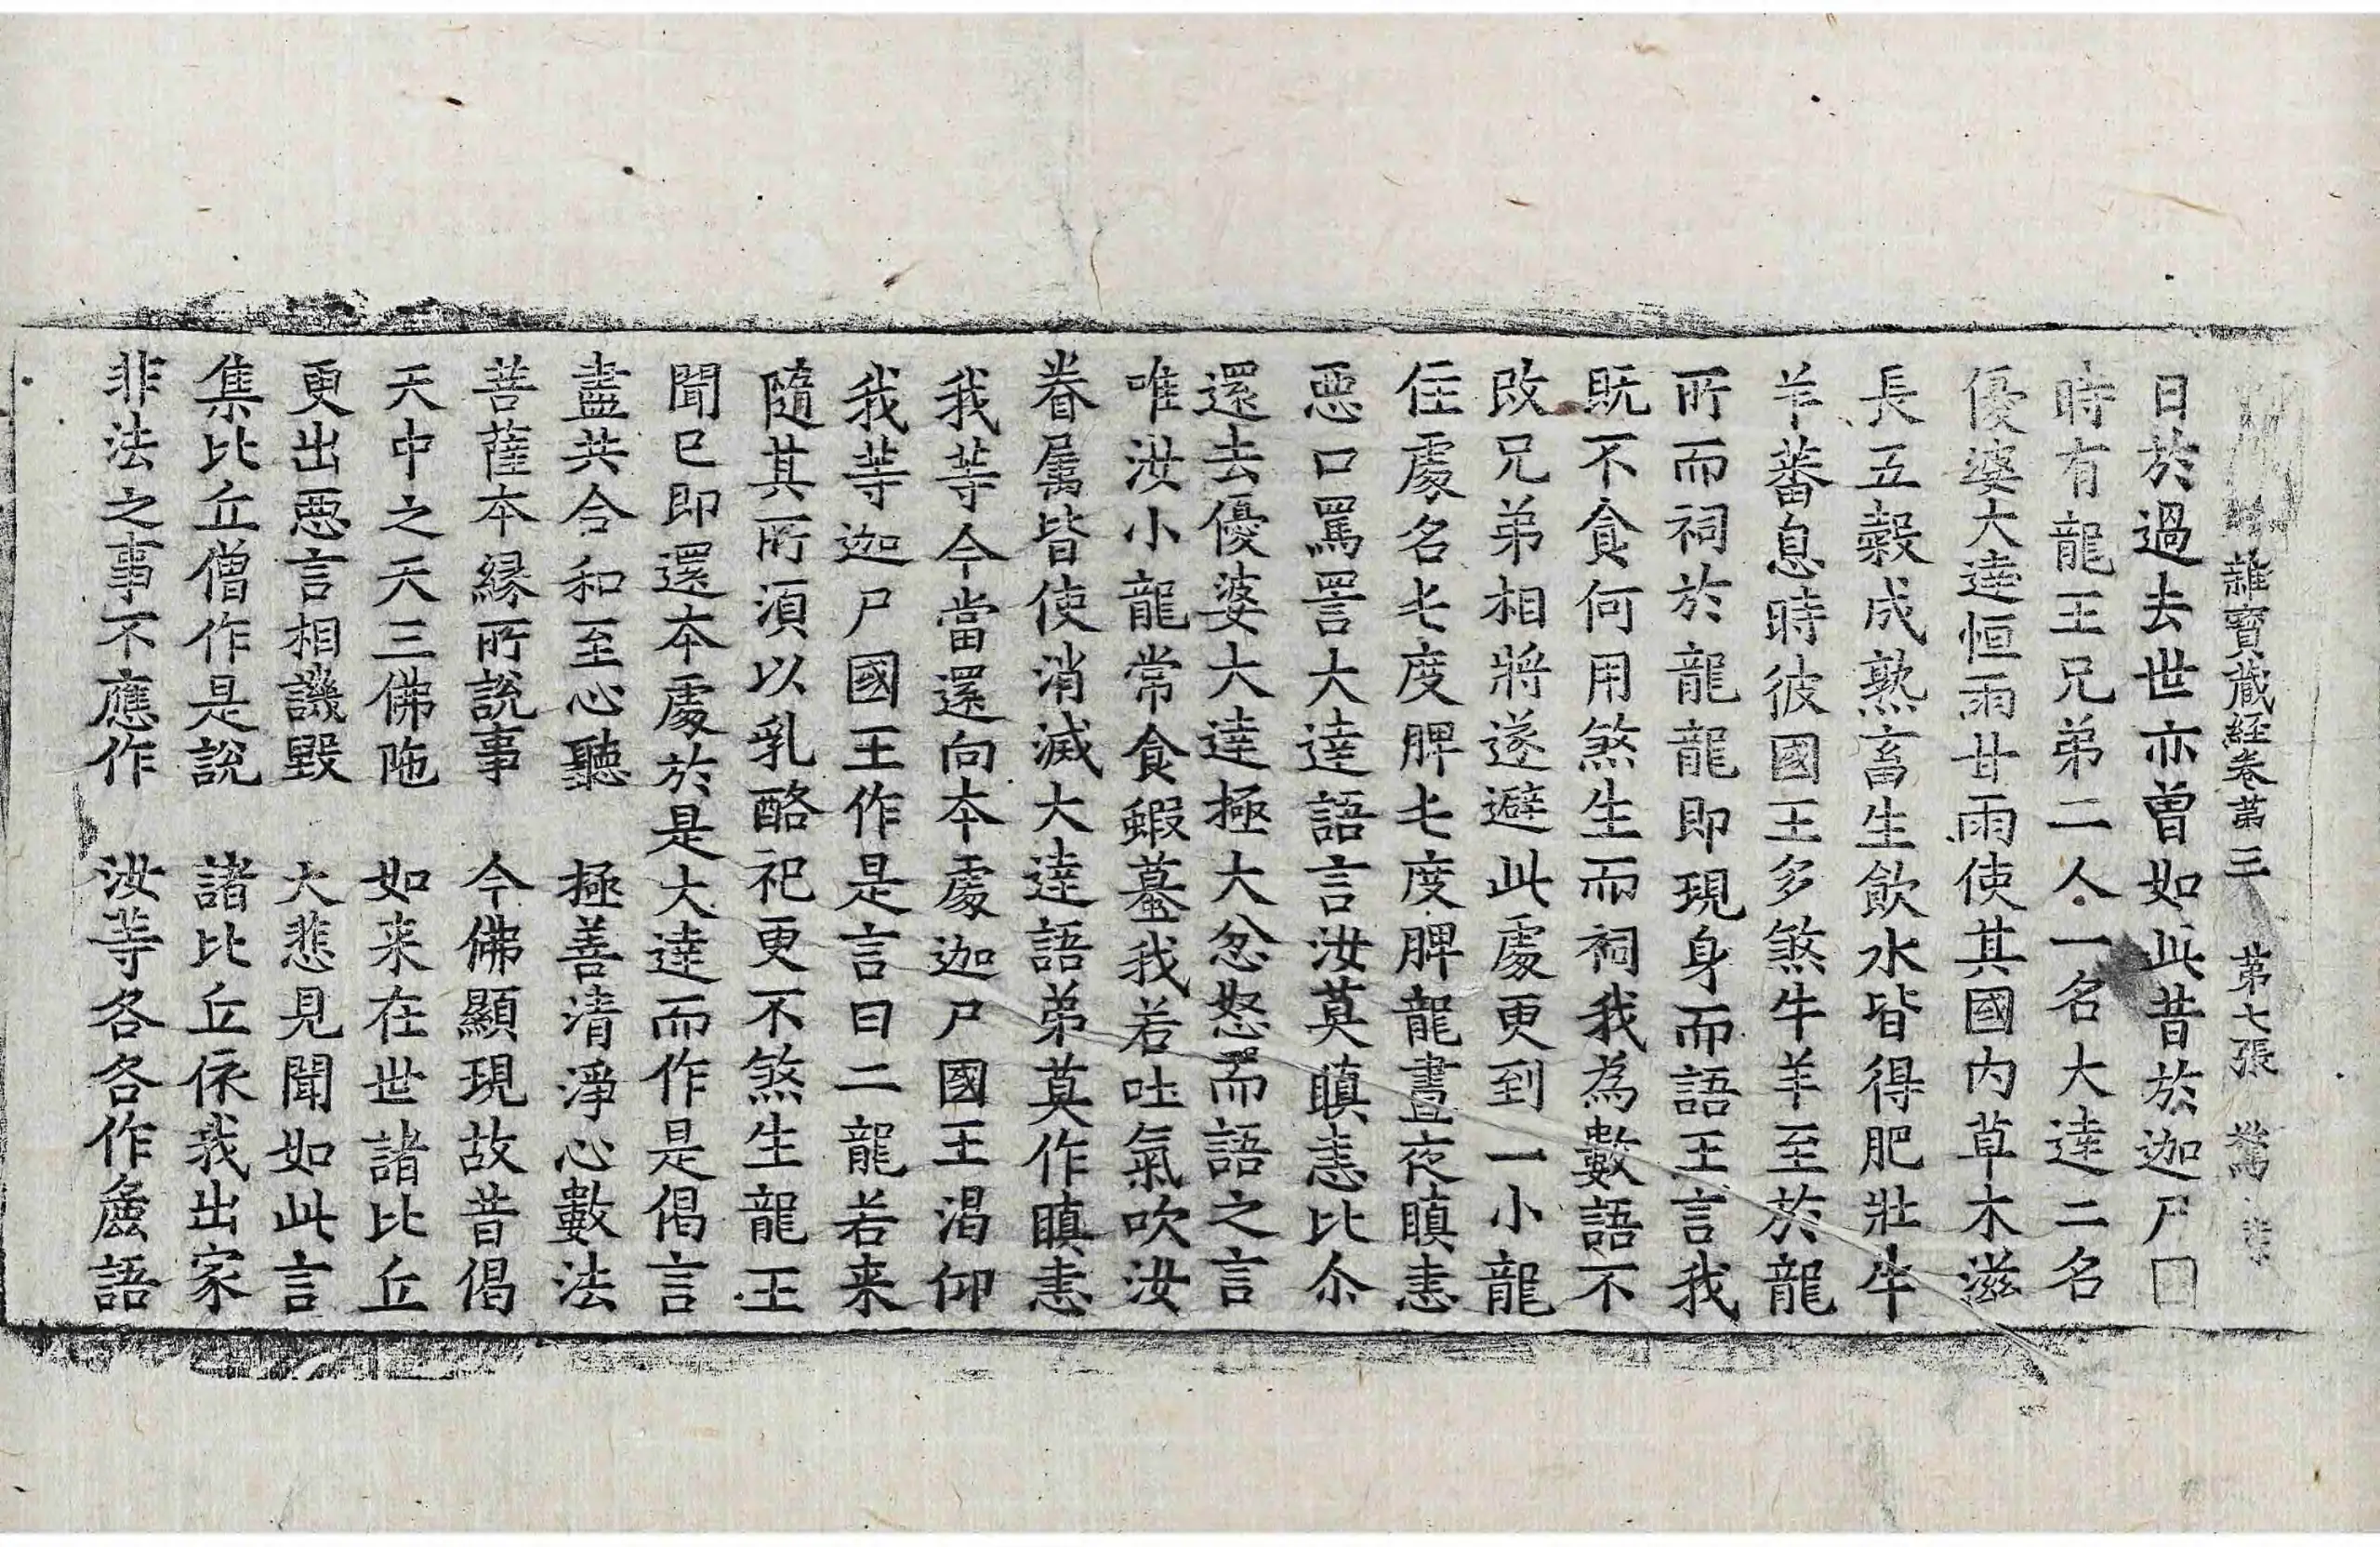 雜寶藏經卷第三 第七張
日於過去世亦曾如此昔於迦尸□
時有龍王兄弟二人一名大達二名
優婆大達恒雨甘雨使其國內草木滋
長五穀成熟畜生飲水皆得肥壯牛
羊蕃息時彼國王多煞牛羊至於龍
所而祠於龍龍即現身而語王言我
既不食何用煞生而祠我為數語不
改兄弟相將遂避此處更到一小龍
住處名七度脾七度脾龍晝夜瞋恚
惡口罵詈大達語言汝莫瞋恚比尒
還去優婆大達極大忿怒而語之言
唯汝小龍常食蝦蟇我若吐氣吹汝
眷属皆使消滅大達語弟莫作瞋恚
我等今當還向本處迦尸國王渴仰
我等迦尸國王作是言曰二龍若来
隨其所須以乳酪祀更不煞生龍王
聞已即還本處於是大達而作是偈言
盡共合和至心聽 極善清淨心數法
菩薩本緣所說事 今佛顯現故昔偈
天中之天三佛陁 如来在世諸比丘
更出惡言相譏毀 大悲見聞如此言
集比丘僧作是說 諸比丘依我出家
非法之事不應作 汝等各各作麁語